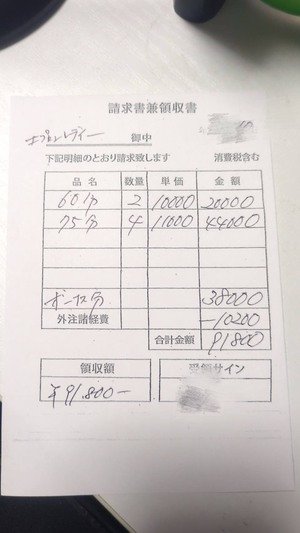 請求書兼領収書
エプロンレディー 御中
下記明細のとおり請求致します 消費税含む
品名 数量 単価 金額
60分 2 10000 20000
75分 4 11000 44000
ボーナス分 38000
外注諸経費 -10200
合計金額 91800
領収額 受領サイン
¥91.800-